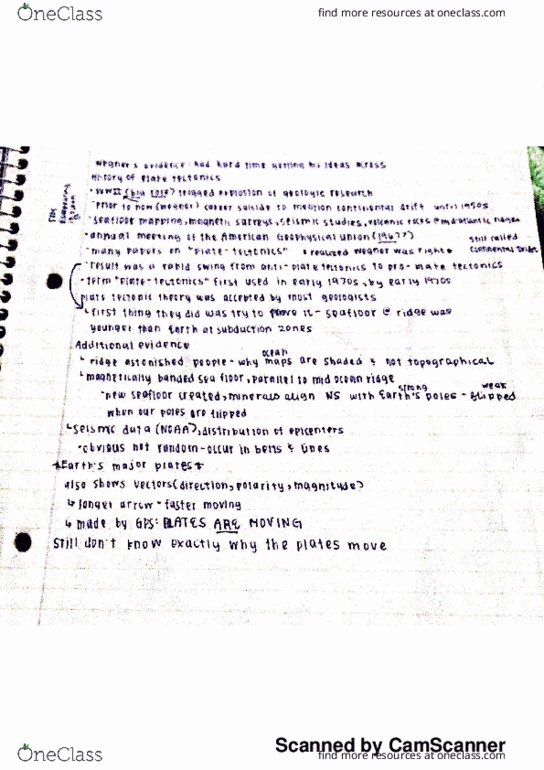 OneClass
find more resources at oneclass.com
Wegner's evidence - had hard time getting his ideas across
History of Plate tectonics
- WWII (big role) triggered explosion of geologic research
- Prior to now (Wegner) career suicide to mention continental drift until 1950s
- Seafloor mapping, magnetic surveys, seismic studies, volcanic rocks @ midatlantic ridges
- annual meeting of the American Geophysical Union (1967?)
still called continental drift
- many papers on "Plate-tectonics" realized Wegner was right
- result was a rapid swing from anti-plate tectonics to pro-plate tectonics
- term "plate-tectonics" first used in early 1970s, by early 1970s
plate tectonic theory was accepted by most geologists
↳ first thing they did was try to prove it - seafloor @ ridge was
younger than Earth at subduction zones
Additional evidence
↳ ridge astonished people - why ocean maps are shaded & not topographical
↳ magnetically banded sea floor, parallel to mid ocean ridge
- new seafloor created, minerals align NS with Earth's poles - flipped
strong weak
when our poles are flipped
↳ Seismic data (NOAA), distribution of epicenters
- obvious not random - occur in belts & lines
*Earth's major plates*
also shows vectors (direction, polarity, magnitude)
↳ longer arrow = faster moving
↳ made by GPS: PLATES ARE MOVING
Still don't know exactly why the plates move
Scanned by CamScanner
OneClass
find more resources at oneclass.com